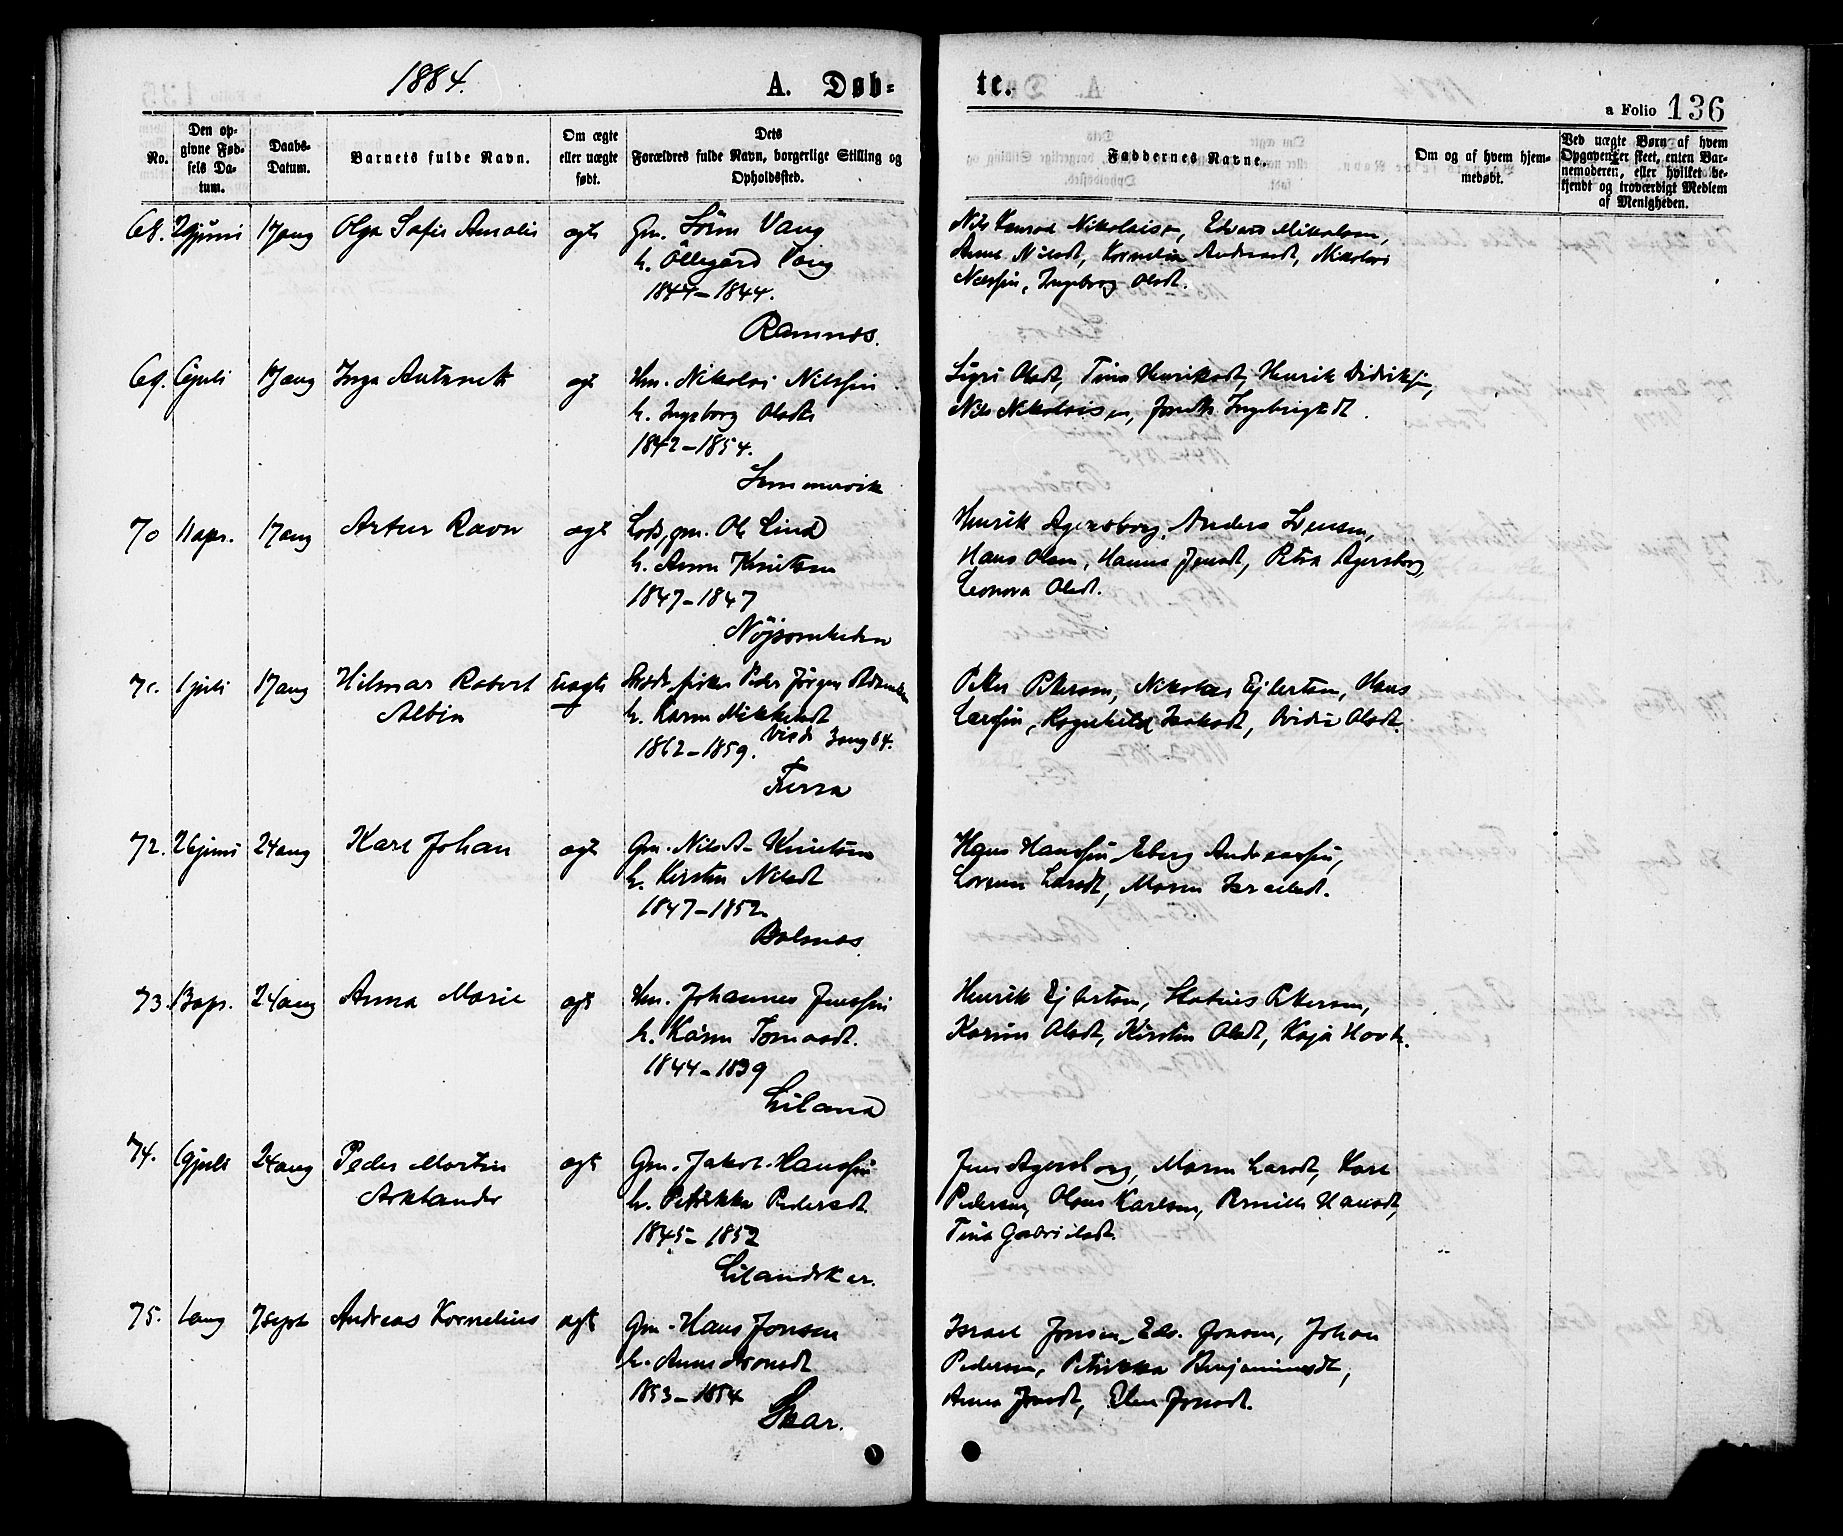 1884.
A. Døb-
te.
a Folio 136
No.
Den op-
givne Fød-
sels Da-
tum.
Daabs-
Datum.
Barnets fulde Navn.
Om ægte
eller uægte
født.
Dets
Forældres fulde Navn, borgerlige Stilling og
Opholdssted.
Faddernes Navne.
Om og af hvem hjem-
medøbt.
Ved uægte Børn af hvem
Opgaven er skeet, enten Bar-
nemoderen, eller hvilket be-
kjendt og troværdigt Medlem
af Menigheden.
68. juni 17 aug Olga Sofie Amalie ægte Gm. Sörin Vang
h. Öllegård Vang
1844-1844.
Ramnes.
Nils Konrad Nikolaisen, Edvard Mikalsen,
Anne Nilsdt, Kornelia Andersdt, Nikolai
Nilssen, Ingeborg Olsdt.
69. 6 juli 17 aug Inga Antonette ægt Hm. Nikolai Nilssen
h. Ingeborg Olsdt
1842-1854.
Sigri Olsdt, Tina Henriksdt, Henrik Didriksen,
Nils Nikolaisen, Ingebrigtsdt.
70 11 apr. 17 aug Artur Ravn ægt Lods, gm. Ole Lind
h. Anna Knutsen
1847-1847
Nöjsomheden
Henrik Agersborg, Anders Svensen,
Hans Olsen, Hanna Jensdt, Petra Agersborg,
Leonora Olsdt.
71. 1 juli 17 aug Hilmar Robert
Albin
uægte
fisker Peder Jörgen
h. Karen Mikkelsdt
1862-1859. Viede 3 aug 84.
Furra
Peter Petersen, Nikolai Ejlertsen, Hans
Larssen, Ragnhild Isaksdt, Olsdt.
72. 26 juni 24 aug Karl Johan ægt Gm. Nils A. Knutsen
h. Kirsten Nilsdt
1847-1852
Balsnes.
Hans Hanssen, Eberg Andreassen,
Lorense Larsdt, Maren Israelsdt.
73. 13 apr. 24 aug Anna Marie ægt Hm. Johannes Jenssen
h. Karen Tomasdt.
1844-1839
Liland
Henrik Ejlertsen, Statius Petersen,
Karine Olsdt, Kirsten Olsdt, Kaja Havik.
74. juli 24 aug Peder Martin
Arklander
ægt
Gm. Jakob Hanssen
h. Petrikke Pedersdt.
1845-1852
Lilandsker.
Jens Agersborg, Maren Larsdt, Karl
Pedersen, Olaus Karlsen, Pernille Hansdt,
Tina Gabrielsdt.
75. 1 aug 7 sept Andreas Kornelius ægt Gm. Hans Jonsen
h. Anne Aronsdt
1853-1854
Skar.
Israel Jonsen, Edv. Jonsen, Johan
Pedersen, Petrikka Benjaminsdt,
Anna Jonsdt, Elen Jonsdt.